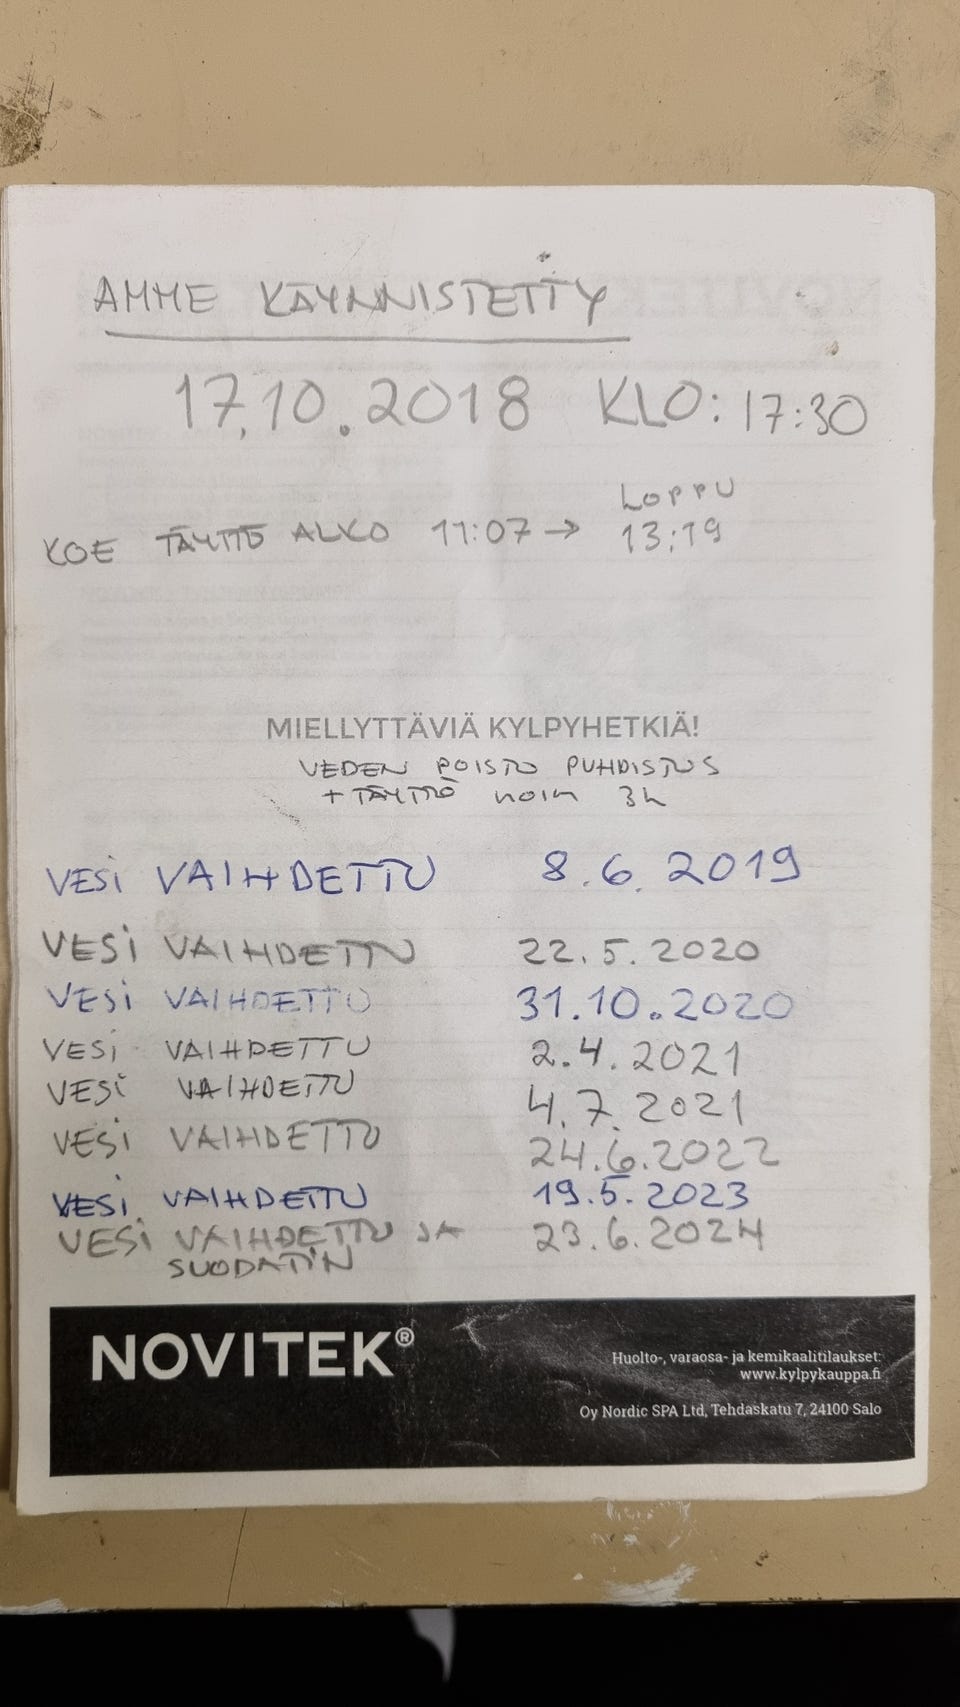 AMME KÄYNNISTETTY
17.10.2018 KLO: 17:30
LOPPU
KOE TÄYTTÖ ALKO 11:07 → 13:19
MIELLYTTÄVIÄ KYLPYHETKIÄ!
VEDEN POISTO PUHDISTUS
+ TÄYTTÖ noin 3h
VESI VAIHDETTU 8.6.2019
VESI VAIHDETTU 22.5.2020
VESI VAIHDETTU 31.10.2020
VESI VAIHDETTU 2.4.2021
VESI VAIHDETTU 4.7.2021
VESI VAIHDETTU 24.6.2022
VESI VAIHDETTU 19.5.2023
VESI VAIHDETTU JA 23.6.2024
SUODATIN
NOVITEK®
Huolto-, varaosa- ja kemikaalitilaukset:
www.kylpykauppa.fi
Oy Nordic SPA Ltd, Tehdaskatu 7, 24100 Salo